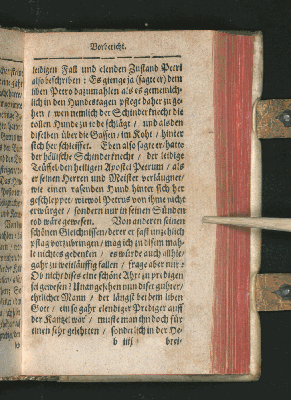 Vorbericht.
leidigen Fall und elenden Zustand Petri
also beschriben: Es gienge ja (sagt er) dem
liben Petro dazumahlen als es gemeinlich
lich in den Hundestagen pflege daher zu ge-
hen / wen nemlich der Schinderknecht die
tollen Hunde zu tode schlägt / und als den
diselben über die Gassen / im Koht / hinter
sich her schleiffet. Eben also sagte er / hatte
der hällische Schinderknecht / der leidige
Teüffel den heiligen Apostel Petrum / als
er seinen Herren und Meister verläugnet /
wie einen rasenden Hund hinter sich her
geschleppet / wiewol Petrus von ihme nicht
erwürget / sondern nur in seinen Sünden
tod wäre gewesen. Von anderen seinen
schönen Gleichnissen / derer er fast unzehlich
pflag vorzubringen / mag ich zu disem mah-
le nichtes gedenken / es würde auch allhie /
gahr zu weitläuffig fallen / frage aber nur:
Ob nicht dises eine schöne Ahrt zu predigen
sei gewesen? Unangesehen nun diser guhter /
ehrlicher Mann / der längst bei dem liben
Gott / ein so gahr elendiger Prediger auff
der Kantzel war / muste man ihn doch für
einen sehr gelehrten / sonderlich in der He-
b iiij brei-